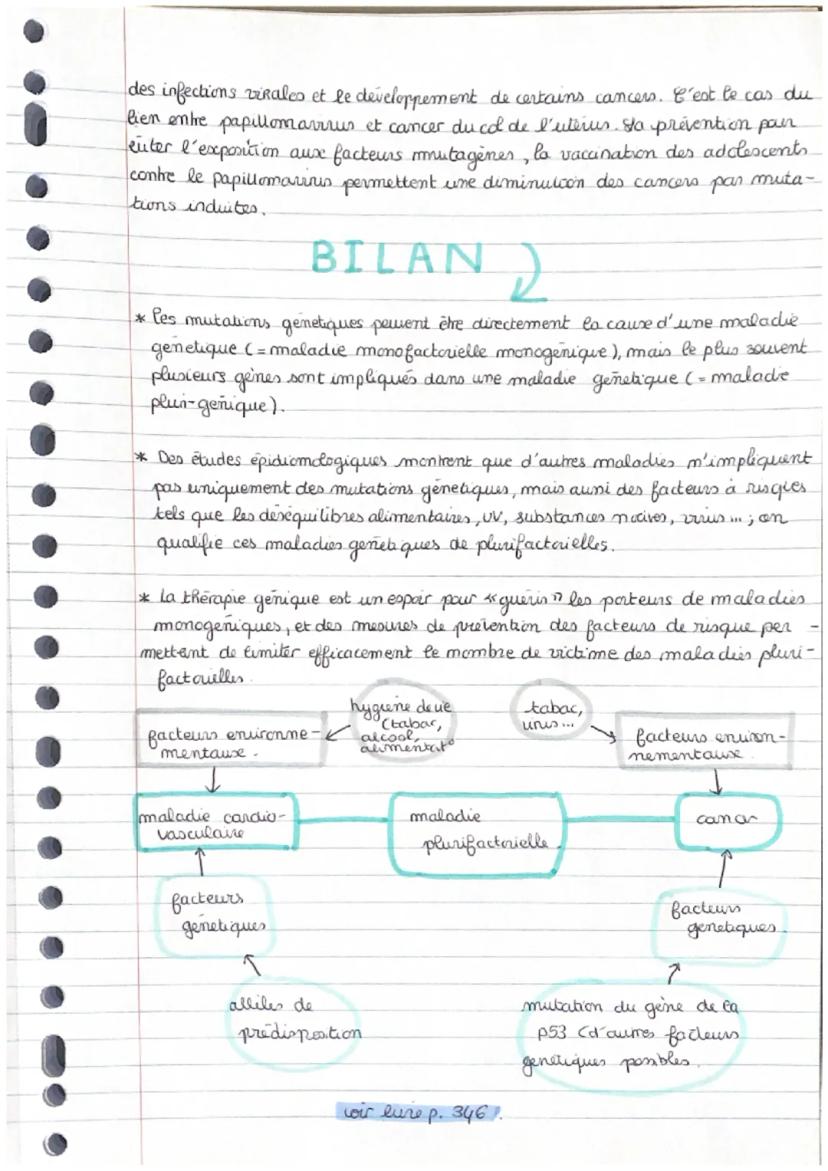 des infections virales et le développement de certains cancers. C'est le cas du
lien entre papillomavirus et cancer du col de l'utérus. La prévention pour
éviter l'exposition aux facteurs mutagènes, la vaccination des adolescents
contre le papillomavirus permettent une diminution des cancers par muta-
tions induites.
BILAN
* Les mutations génétiques peuvent être directement la cause d'une maladie
génétique (= maladie monofactorielle monogénique), mais le plus souvent
plusieurs gènes sont impliqués dans une maladie génétique (= maladie
pluri-génique).
* Des études épidiomologiques montrent que d'autres maladies n'impliquent
pas uniquement des mutations génétiques, mais aussi des facteurs à risques
tels que les déséquilibres alimentaires, UV, substances nocives, virus ... ; on
qualifie ces maladies génétiques de plurifactorielles.
* La thérapie génique est un espoir pour "guérir" les porteurs de maladies
monogéniques, et des mesures de prévention des facteurs de risque per-
mettent de limiter efficacement le nombre de victime des maladies pluri-
factorielles.
hygiène de vie
(tabac,
alcool,
alimentat°
tabac,
virus...
facteurs environne-
mentaux.
facteurs environ-
nementaux.
maladie cardio-
vasculaire
maladie
plurifactorielle.
cancer
facteurs
génétiques
facteurs
génétiques.
allèles de
prédisposition
mutation du gène de la
p53 (d'autres facteurs
génétiques possibles.
voir livre p. 346.